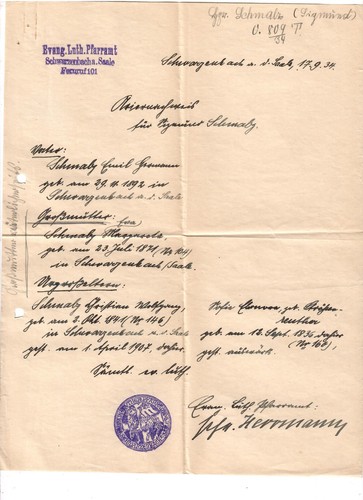 Schmalz (Sigmund)
O. 809
34
Evang. Luth. Pfarramt
Schwarzenbach a. Saale
Fernruf 101
Schwarzenbach a. d. Saale, 17.9.34.
für Schmalz.
Vater:
Schmalz Emil Hermann
geb. am 29. in
Schwarzenbach a. d. Saale
Großmutter:
Schmalz Margareta
geb. am 23. Juli 1871 (Nr 104)
in Schwarzenbach/Saale.
Urgroßeltern:
Schmalz Christian Wolfgang,
geb. am 2. Okt. 1841 (Nr 146)
in Schwarzenbach a. d. Saale
gest. am 1. April 1907, daher.
geb.
geb. am 12. Sept. 1835,
gest. auswärts.
Sämtl. ev. luth.
Evang. Luth. Pfarramt:
Pfr. Herrmann